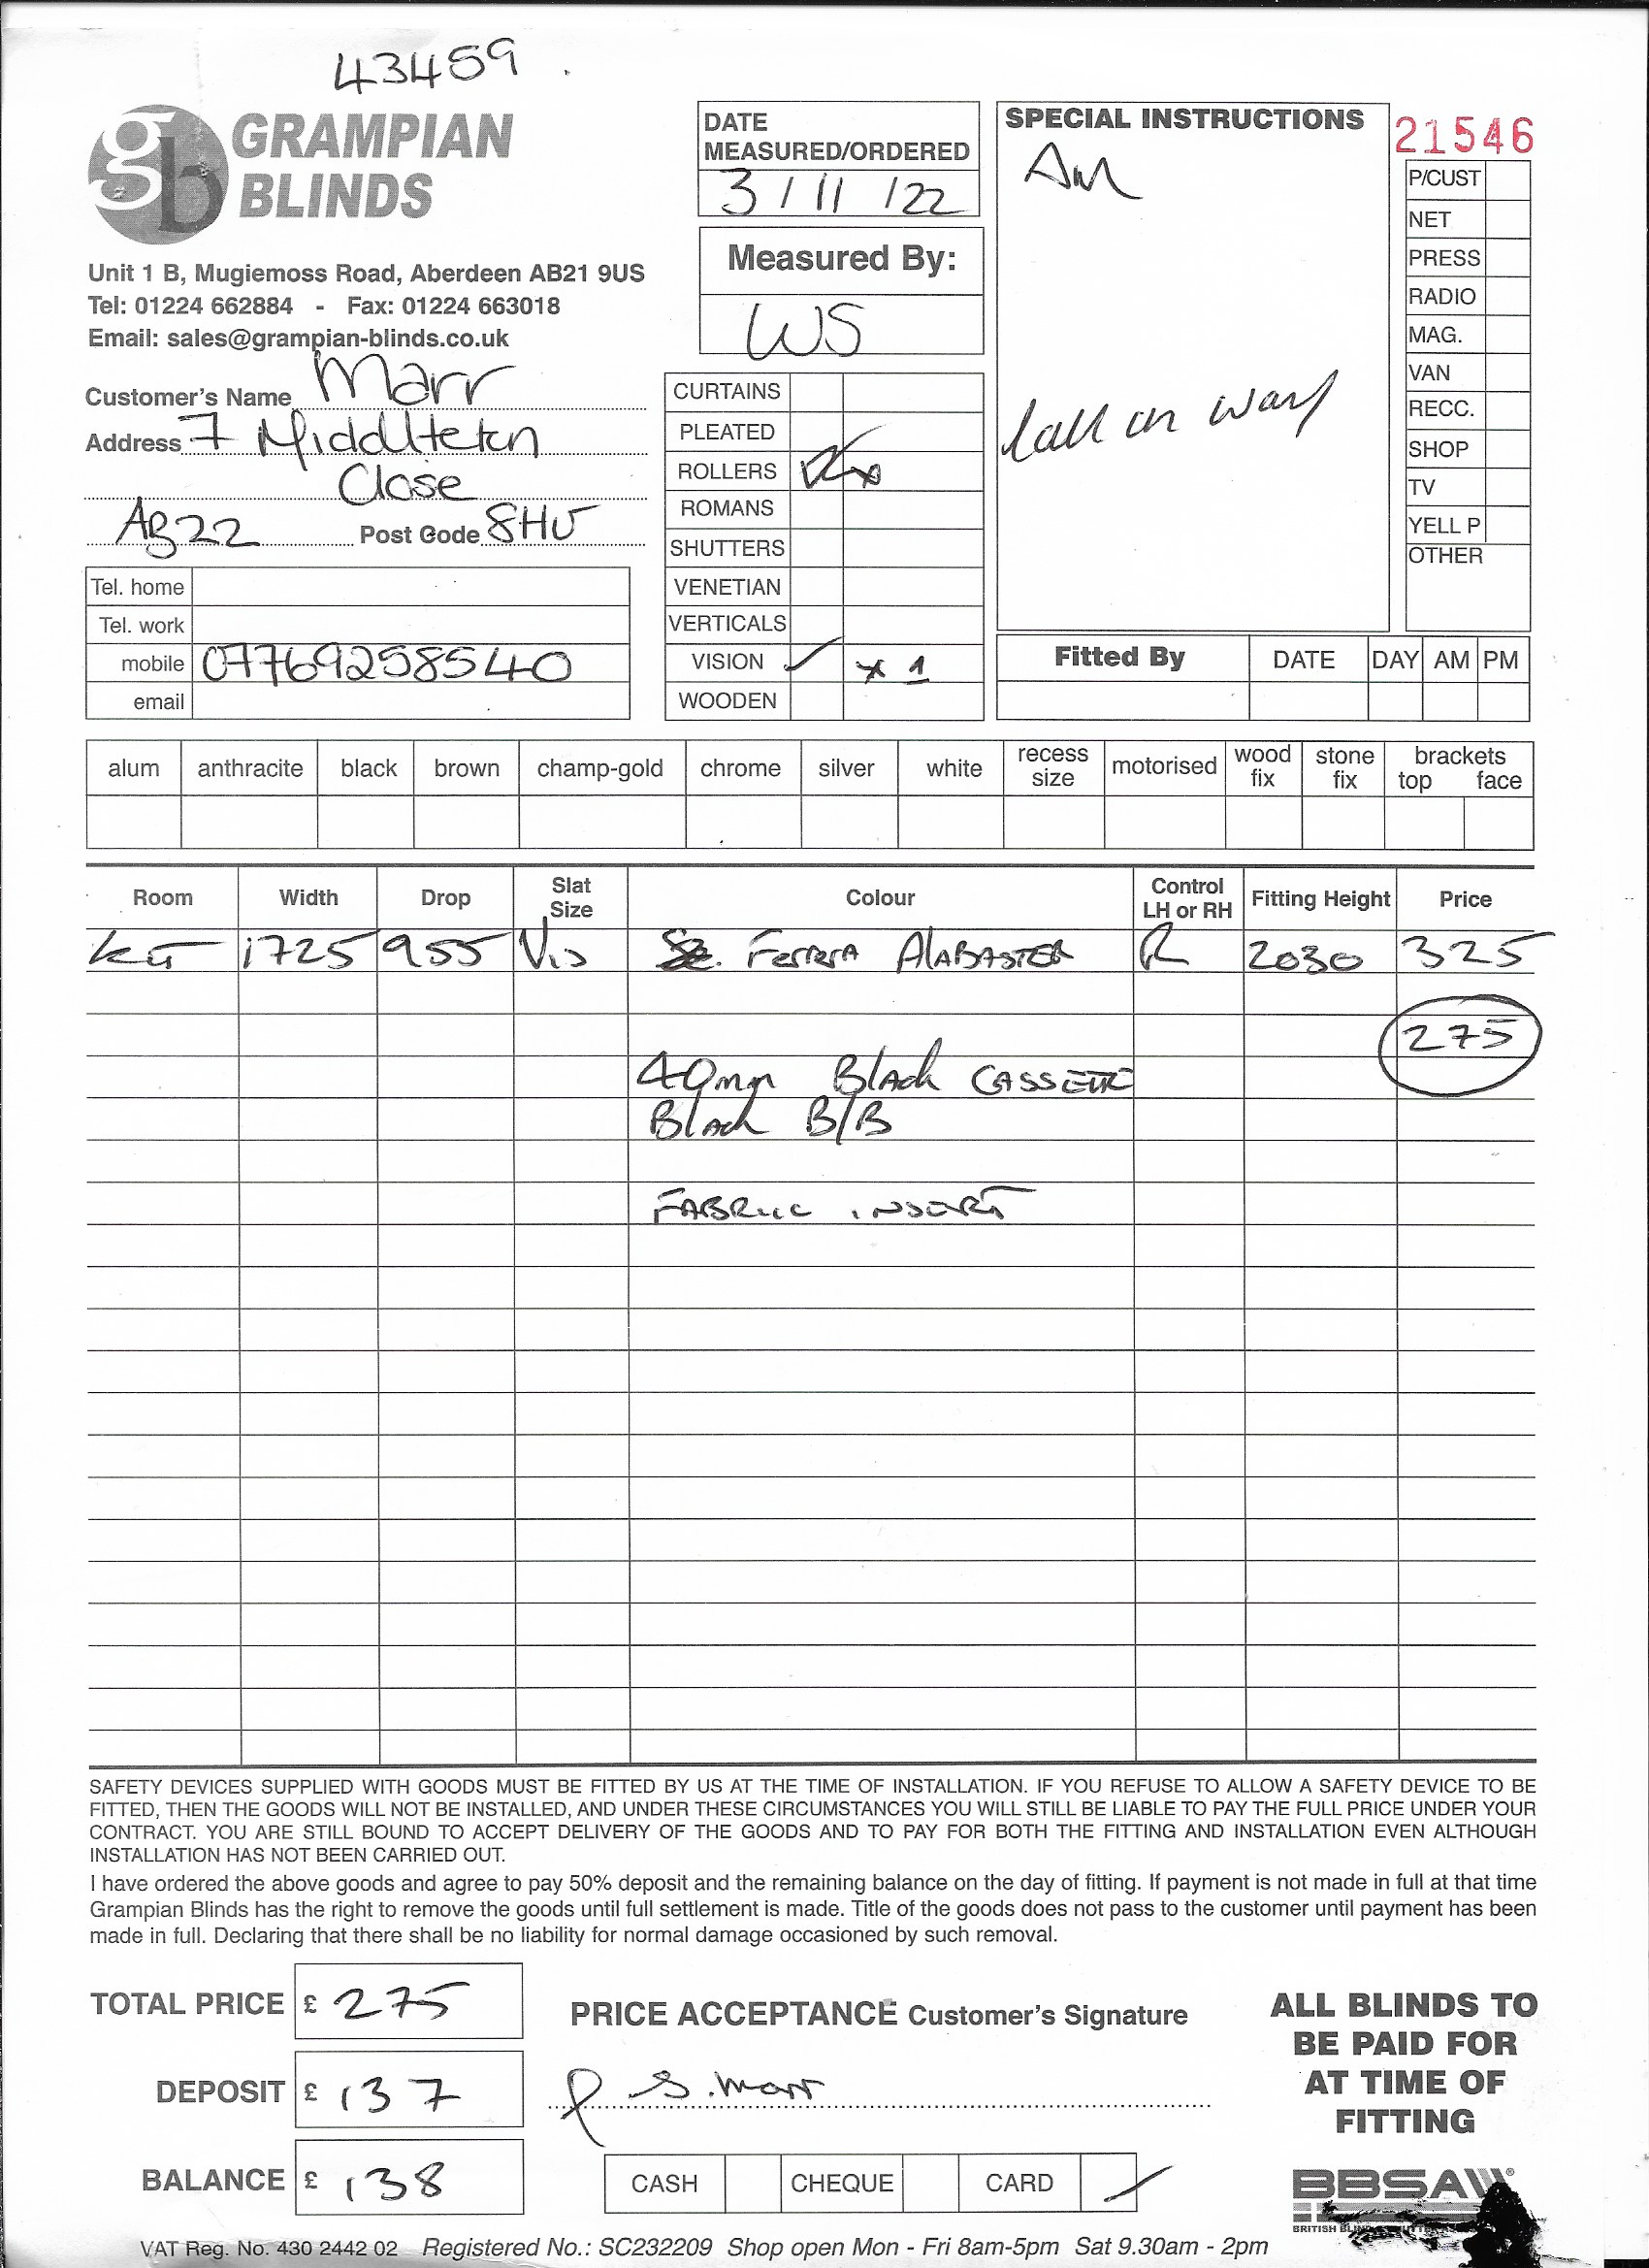 43459
GRAMPIAN
BLINDS
Unit 1 B, Mugiemoss Road, Aberdeen AB21 9US
Tel: 01224 662884 - Fax: 01224 663018
Email: sales@grampian-blinds.co.uk
Customer's Name Marr
Address 7 Middleton
Close
AB22 Post Code 8HU
Tel. home
Tel. work
mobile 07769258540
email
DATE
MEASURED/ORDERED
3/11/22
Measured By:
WS
CURTAINS
PLEATED
ROLLERS
ROMANS
SHUTTERS
VENETIAN
VERTICALS
VISION ✓ x 1
WOODEN
SPECIAL INSTRUCTIONS
AM
Call on way
21546
P/CUST
NET
PRESS
RADIO
MAG.
VAN
RECC.
SHOP
TV
YELL P
OTHER
Fitted By DATE DAY AM PM
alum anthracite black brown champ-gold chrome silver white recess size motorised wood fix stone fix brackets top face
Room Width Drop Slat Size Colour Control LH or RH Fitting Height Price
Kit 1725 955 Vis Ferrera ALABASTER R 2030 325
275
40mm Black CASSETTE
Black B/B
FABRIC INSERT
SAFETY DEVICES SUPPLIED WITH GOODS MUST BE FITTED BY US AT THE TIME OF INSTALLATION. IF YOU REFUSE TO ALLOW A SAFETY DEVICE TO BE
FITTED, THEN THE GOODS WILL NOT BE INSTALLED, AND UNDER THESE CIRCUMSTANCES YOU WILL STILL BE LIABLE TO PAY THE FULL PRICE UNDER YOUR
CONTRACT. YOU ARE STILL BOUND TO ACCEPT DELIVERY OF THE GOODS AND TO PAY FOR BOTH THE FITTING AND INSTALLATION EVEN ALTHOUGH
INSTALLATION HAS NOT BEEN CARRIED OUT.
I have ordered the above goods and agree to pay 50% deposit and the remaining balance on the day of fitting. If payment is not made in full at that time
Grampian Blinds has the right to remove the goods until full settlement is made. Title of the goods does not pass to the customer until payment has been
made in full. Declaring that there shall be no liability for normal damage occasioned by such removal.
TOTAL PRICE £ 275
DEPOSIT £ 137
BALANCE £ 138
PRICE ACCEPTANCE Customer's Signature
S. Marr
CASH CHEQUE CARD ✓
ALL BLINDS TO
BE PAID FOR
AT TIME OF
FITTING
BBSA
BRITISH
VAT Reg. No. 430 2442 02 Registered No.: SC232209 Shop open Mon - Fri 8am-5pm Sat 9.30am - 2pm